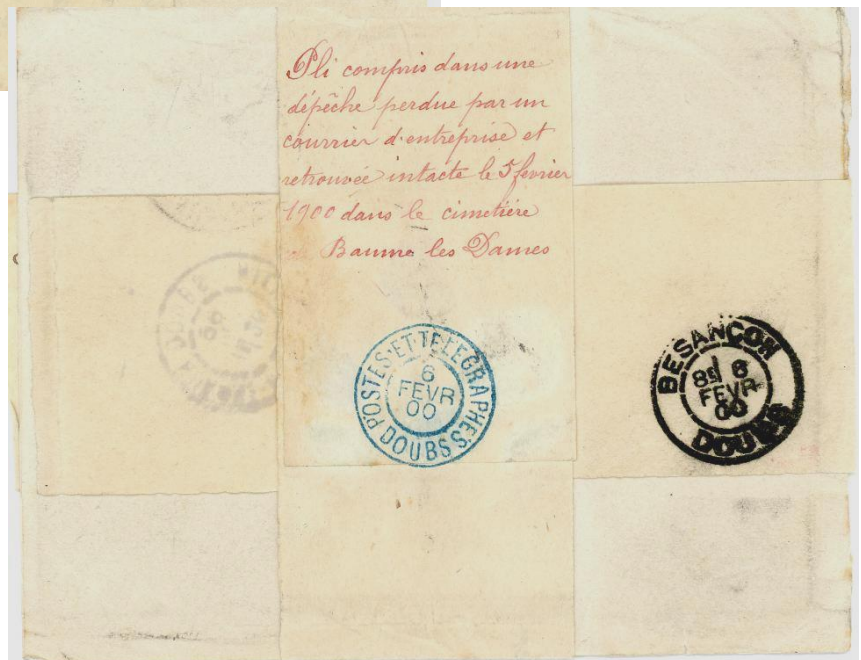 Pli compris dans une
dépêche perdue par un
courrier d'entreprise et
retrouvée intacte le 5 fevrier
1900 dans le cimetière
de Baume les Dames
POSTES ET TELEGRAPHES
6
FEVR
00
DOUBS
BESANÇON
8S 6
FEVR
00
DOUBS